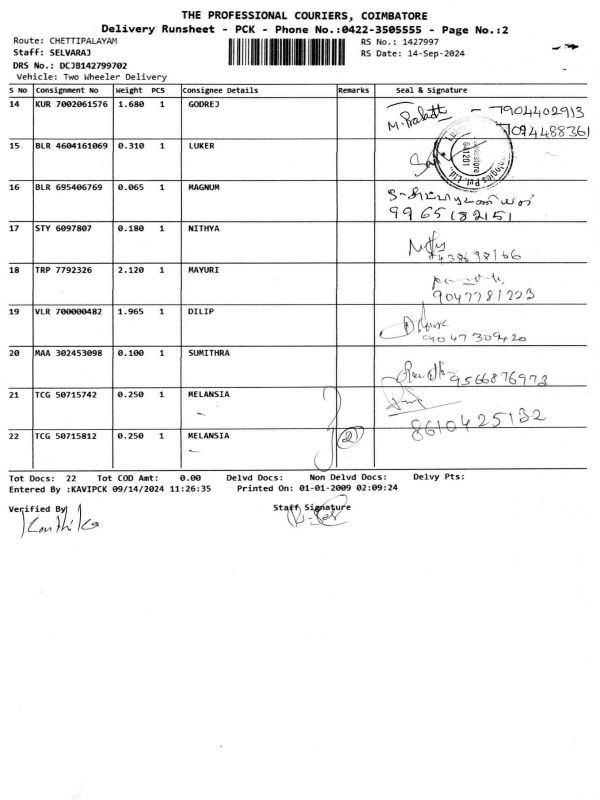 THE PROFESSIONAL COURIERS, COIMBATORE
Delivery Runsheet - PCK - Phone No.:0422-3505555 - Page No.:2
Route: CHETTIPALAYAM RS No.: 1427997
Staff: SELVARAJ RS Date: 14-Sep-2024
DRS No.: DCJB142799702
Vehicle: Two Wheeler Delivery
S No Consignment No Weight PCS Consignee Details Remarks Seal & Signature
14 KUR 7002061576 1.680 1 GODREJ M. Prabath - 7904402913
7094488361
15 BLR 4604161069 0.310 1 LUKER
16 BLR 695406769 0.065 1 MAGNUM
9965182151
17 STY 6097807 0.180 1 NITHYA
18 TRP 7792326 2.120 1 MAYURI
9047781223
19 VLR 700000482 1.965 1 DILIP
9047309420
20 MAA 302453098 0.100 1 SUMITHRA
9566876973
21 TCG 50715742 0.250 1 MELANSIA
8610425132
22 TCG 50715812 0.250 1 MELANSIA 21
Tot Docs: 22 Tot COD Amt: 0.00 Delvd Docs: Non Delvd Docs: Delvy Pts:
Entered By :KAVIPCK 09/14/2024 11:26:35 Printed On: 01-01-2009 02:09:24
Verified By Staff Signature